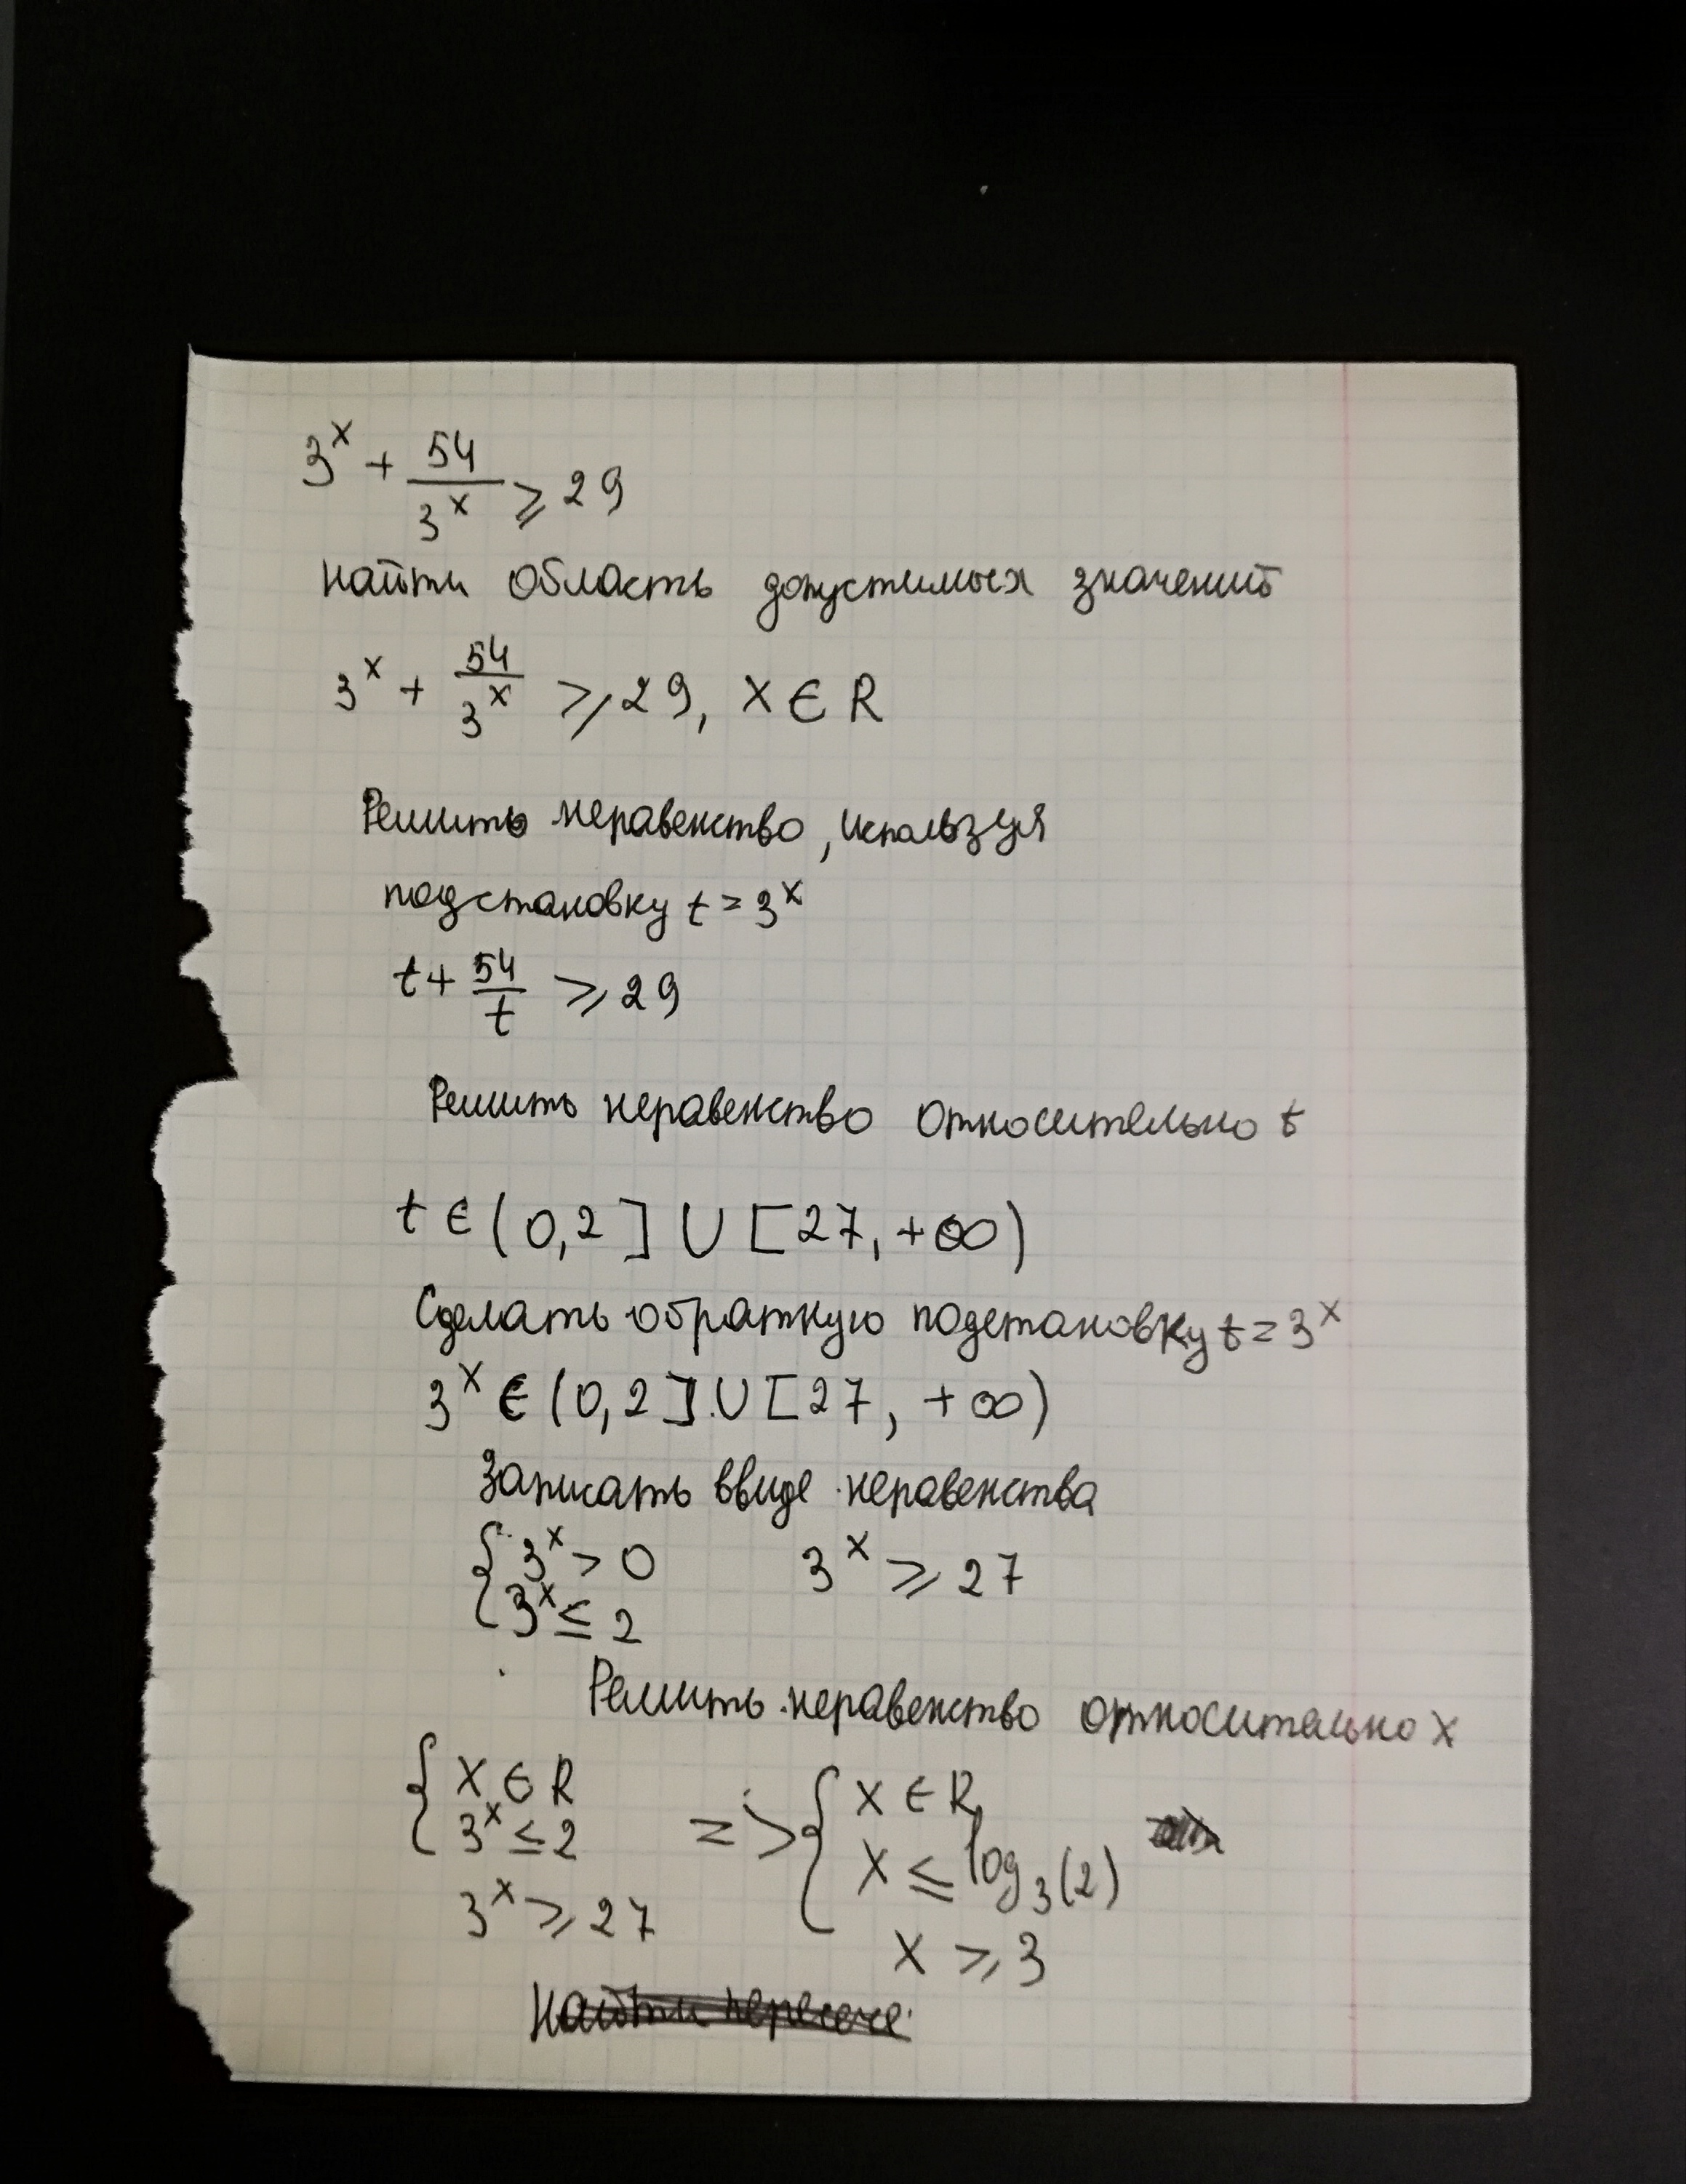 3^x + 54/3^x ⩾ 29
найти область допустимых значений
3^x + 54/3^x ⩾ 29, x ∈ R
Решить неравенство, используя
подстановку t = 3^x
t + 54/t ⩾ 29
Решить неравенство относительно t
t ∈ (0,2] ∪ [27, +∞)
Сделать обратную подстановку t = 3^x
3^x ∈ (0,2] ∪ [27, +∞)
Записать ввиде неравенства
{ 3^x > 0 3^x ⩾ 27
{ 3^x ≤ 2
Решить неравенство относительно x
{ x ∈ R => { x ∈ R,
{ 3^x ≤ 2 { x ≤ log_3(2)
3^x ⩾ 27 x ⩾ 3